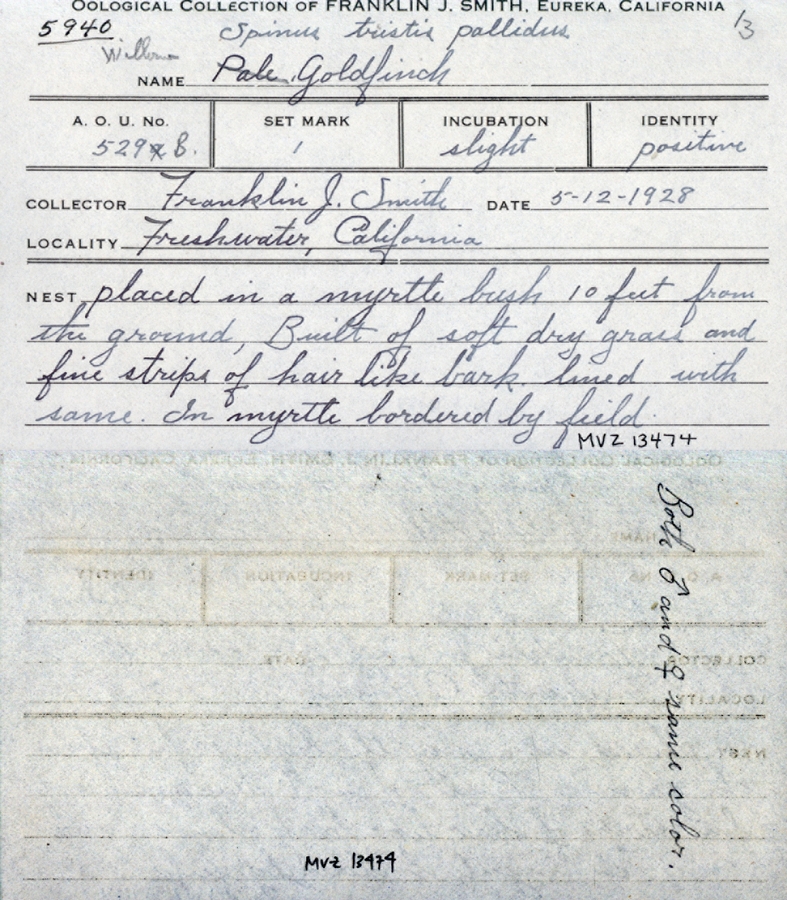 OOLOGICAL COLLECTION OF FRANKLIN J. SMITH, EUREKA, CALIFORNIA
5940 Spinus tristis pallidus 13
NAME Pale Goldfinch
A. O. U. No. SET MARK INCUBATION IDENTITY
529 B. 1 slight positive
COLLECTOR Franklin J. Smith DATE 5-12-1928
LOCALITY Freshwater, California
NEST placed in a myrtle bush 10 feet from
the ground, Built of soft dry grass and
fine strips of hair like bark. lined with
same. In myrtle bordered by field.
MVZ 13474
Both ♂ and ♀ same color.
MVZ 13474